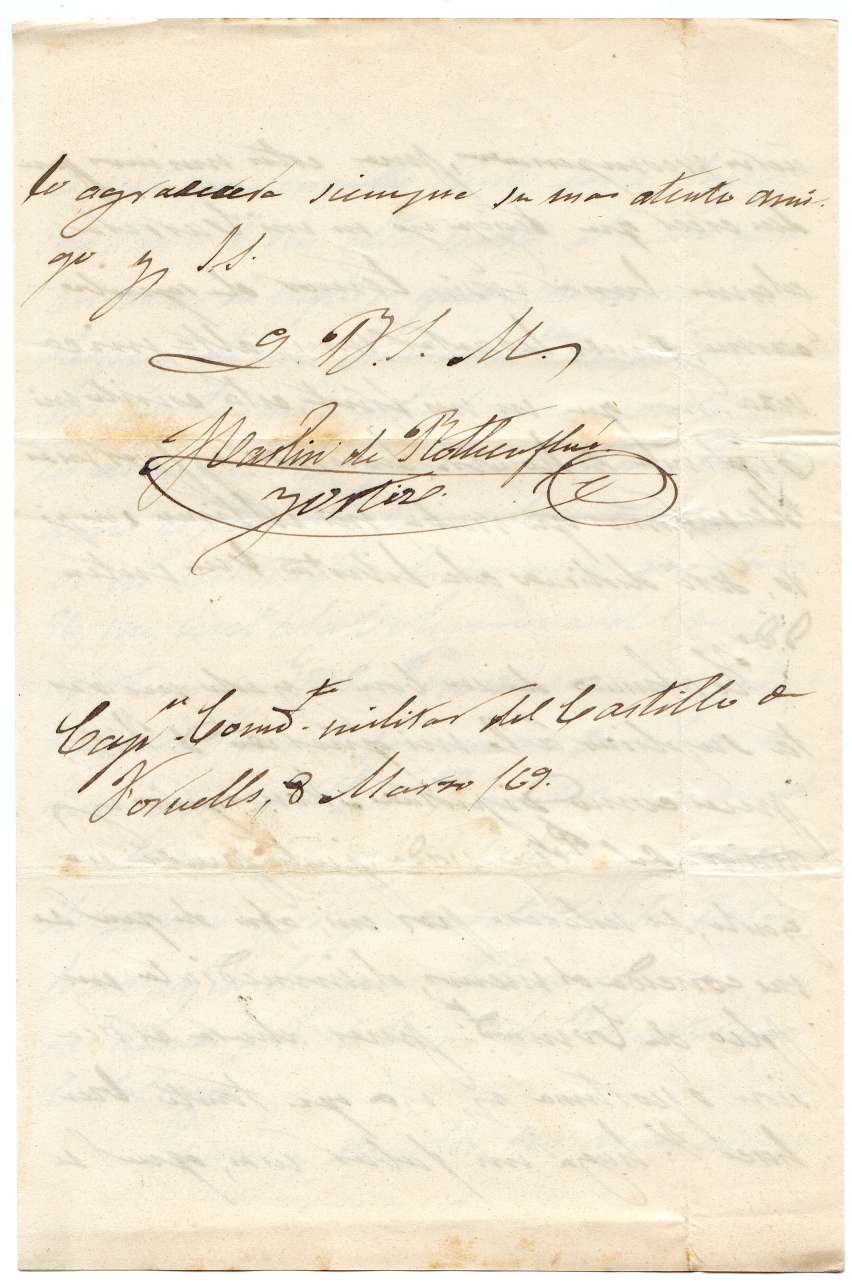 lo agradecera siempre su mas atento ami-
go y S.S.
Q. B. S. M.
Martin de Rothenflue.
y Ortiz.
Cap.n Comd.te militar del Castillo de
Fornells, 8 Marzo /69.